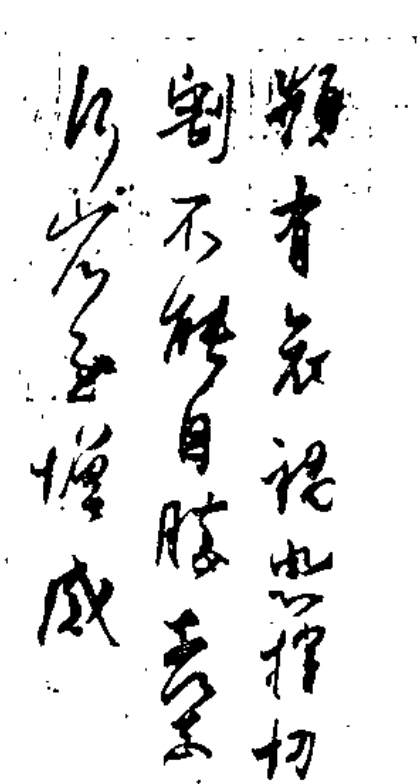 頻有哀禍悲摧切
割不能自勝奈何奈
何省慰增感